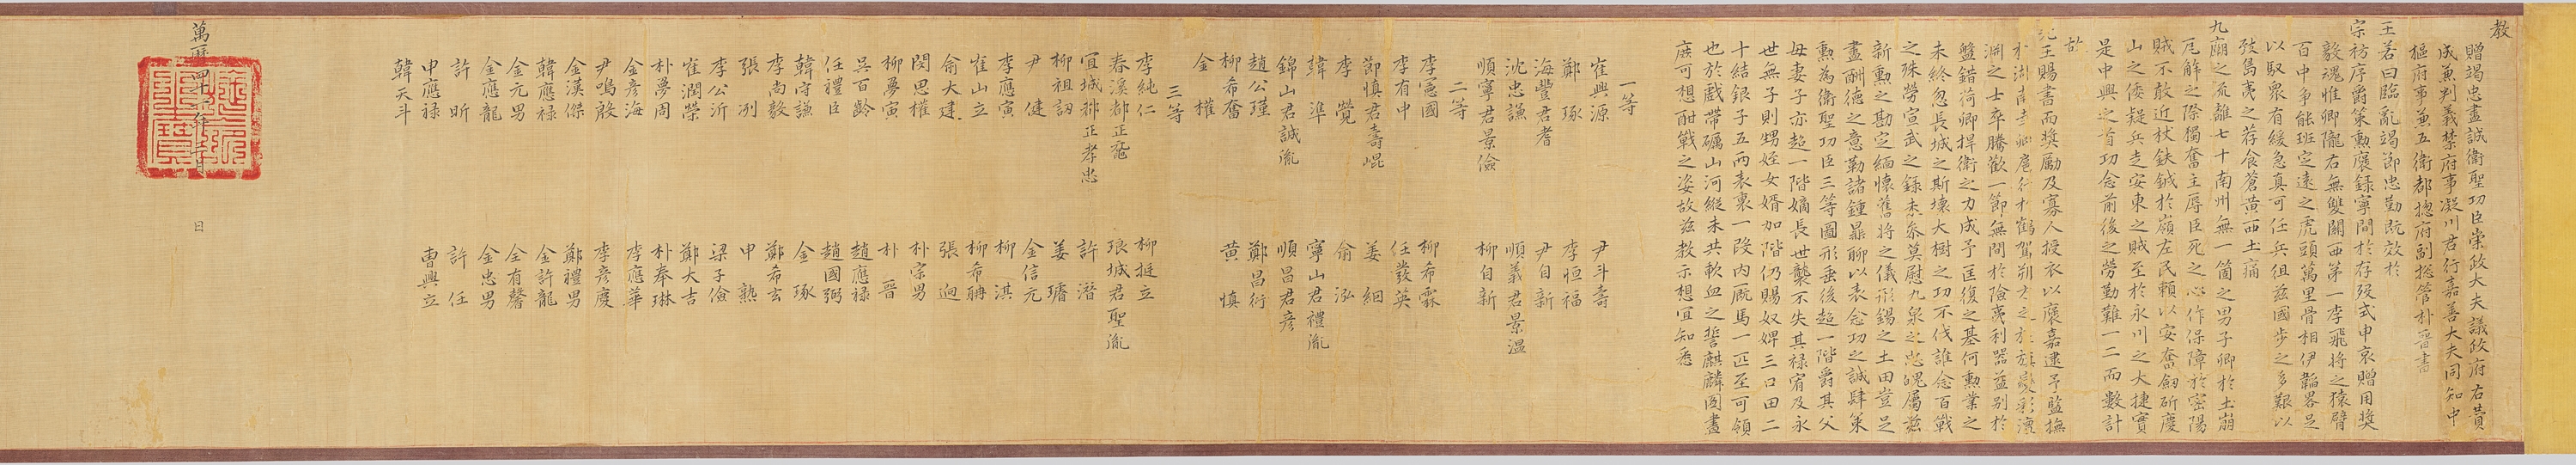 教
贈竭忠盡誠衛聖功臣崇政大夫議政府右贊
成兼判義禁府事凝川君行嘉善大夫同知中
樞府事兼五衛都摠府副摠管朴晉書
王若曰臨亂竭節忠勤旣效於
宗祊序爵策勳褒錄寧間於存歿式申哀贈用奬
毅魂惟卿隴右無雙關西第一李飛將之猿臂
百中爭能班定遠之虎頭萬里骨相伊韜畧足
以馭衆有緩急眞可任兵俎玆國步之多艱以
致島夷之荐食蒼黃西土痛
九廟之流離七十南州無一箇之男子卿於土崩
瓦解之際獨奮主辱臣死之心作保障於密陽
賊不敢近杖鈇鉞於嶺左民賴以安奮劒斫慶
山之倭疑兵走安東之賊至於永川之大捷實
是中興之首功念前後之勞勤難一二而數計
故
先王賜書而奬勵及寡人授衣以褒嘉逮予監撫
盤錯荷卿捍衛之力成予匡復之基何勳業之
未終忽長城之斯壞大樹之功不伐誰念百戰
之殊勞宣武之錄未參莫慰九泉之忠魄屬玆
新勳之勘定緬懷舊將之儀形錫之土田豈足
盡酬德之意勒諸鍾鼎聊以表念功之誠肆策
勳爲衛聖功臣三等圖形垂後超一階爵其父
母妻子亦超一階嫡長世襲不失其祿宥及永
世無子則甥姪女婿如階仍賜奴婢三口田二
十結銀子五兩表裏一段內廐馬一匹至可領
也於戱帶礪山河縱未共歃血之誓麒麟圖畫
庶可想酣戰之姿故玆敎示想宜知悉
一等
崔興源 尹斗壽
鄭琢 李恒福
海豐君耆 尹自新
沈忠謙 順義君景溫
順寧君景儉 柳自新
二等
李憲國 柳希霖
李有中 任發英
節愼君壽崐 姜絪
李覮 俞泓
韓準 寧山君禮胤
錦山君誠胤 順昌君彦
趙公瑾 鄭昌衍
柳希奮 黃愼
金權
三等
李純仁 柳挺立
春溪都正 琅城君聖胤
宜城都正孝忠 許潛
柳祖訒 姜璿
尹健 金信元
李應寅 柳淇
崔山立 柳希聃
俞大建 張逈
閔思權 朴宗男
柳夢寅 朴晉
吳百齡 趙應祿
任禮臣 趙國弼
韓守謙 金琢
李尙毅 鄭希玄
張冽 申熟
李公沂 梁子儉
崔潤榮 鄭大吉
朴夢周 朴奉琳
金彦海 李應華
尹鳴殷 李彦慶
金漢傑 鄭禮男
韓應祿 金許龍
金元男 全有馨
金應龍 金忠男
許昕 許任
申應祿 曹興立
韓天斗
萬曆四十 年 月 日